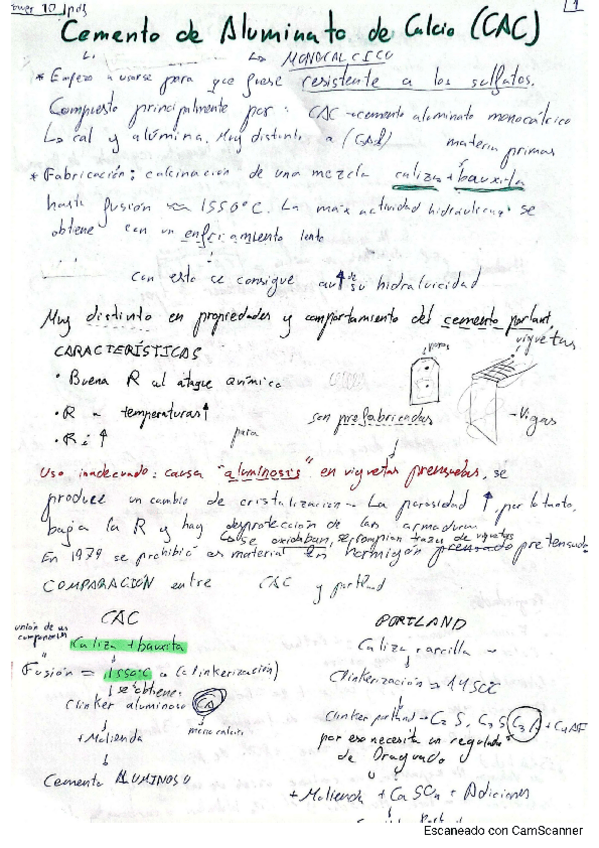 Cemento de Aluminato de Calcio (CAC)
1
MONOCALCICO
* Empezo a usarse para que fuese resistente a los sulfatos.
Compuesto principalmente por: CAC → cemento aluminato monocálcico
Lo cal y alúmina. Muy distinto a (CAC)
materia primas
* Fabricación: calcinación de una mezcla caliza + bauxita
hasta fusión 1550°C. La max actividad hidráulica se
obtiene con un enfriamiento lento
con esto se consigue au↑ de su hidraluicidad
Muy distinto en propiedades y comportamiento del cemento portland.
viguetas
CARACTERÍSTICAS
• Buena R al ataque químico
• R a temperaturas ↑
son prefabricadas
- Vigas
• Ri ↑
para
Uso inadecuado: causa "aluminosis" en viguetas prensadas, se
produce un cambio de cristalización → La porosidad ↑, por lo tanto,
baja la R y hay desprotección de las armaduras
se oxidaban, se rompian trozos de viguetas
En 1979 se prohibió as material en hormigón pretensado
COMPARACIÓN entre CAC y portland
CAC
PORTLAND
unión de los componentes
Caliza + bauxita
Caliza + arcilla
Fusión = 1550°C (clinkerización)
Clinkerización = 1450°C
se obtiene:
Clinker aluminoso CA
monocalcico
Clinker portland → C2S, C3S C3A + C4AF
por eso necesita un regulador
de fraguado
+ Molienda
+ Molienda + CaSO4 + Adiciones
Cemento ALUMINOSO
Escaneado con CamScanner